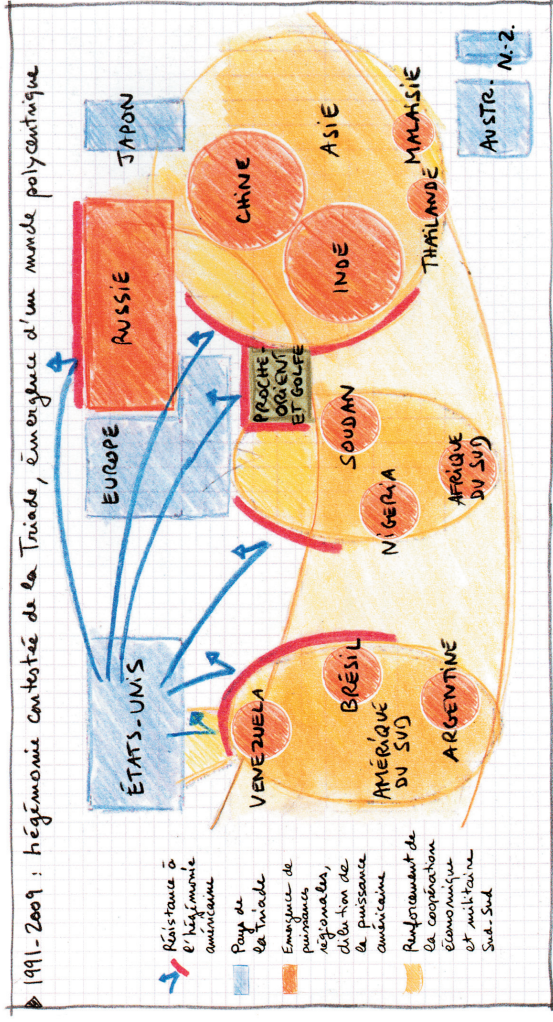 1991-2009 : hégémonie contestée de la Triade, émergence d'un monde polycentrique
Résistance à
l'hégémonie
américaine
Pays de
la Triade
Emergence de
puissances
régionales,
dilution de
la puissance
américaine
Renforcement de
la coopération
économique
et militaire
Sud-Sud
ÉTATS-UNIS
EUROPE
RUSSIE
JAPON
PROCHE-
ORIENT
ET GOLFE
CHINE
INDE
ASIE
MALAISIE
THAÏLANDE
VENEZUELA
BRÉSIL
AMÉRIQUE
DU SUD
ARGENTINE
SOUDAN
NIGERIA
AFRIQUE
DU SUD
AUSTR.
N.-Z.